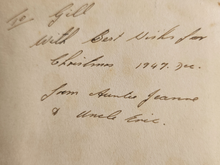 To Gill
With Best Wishes for
Christmas 1947. Dec.
from Auntie Jeanne
& Uncle Eric.